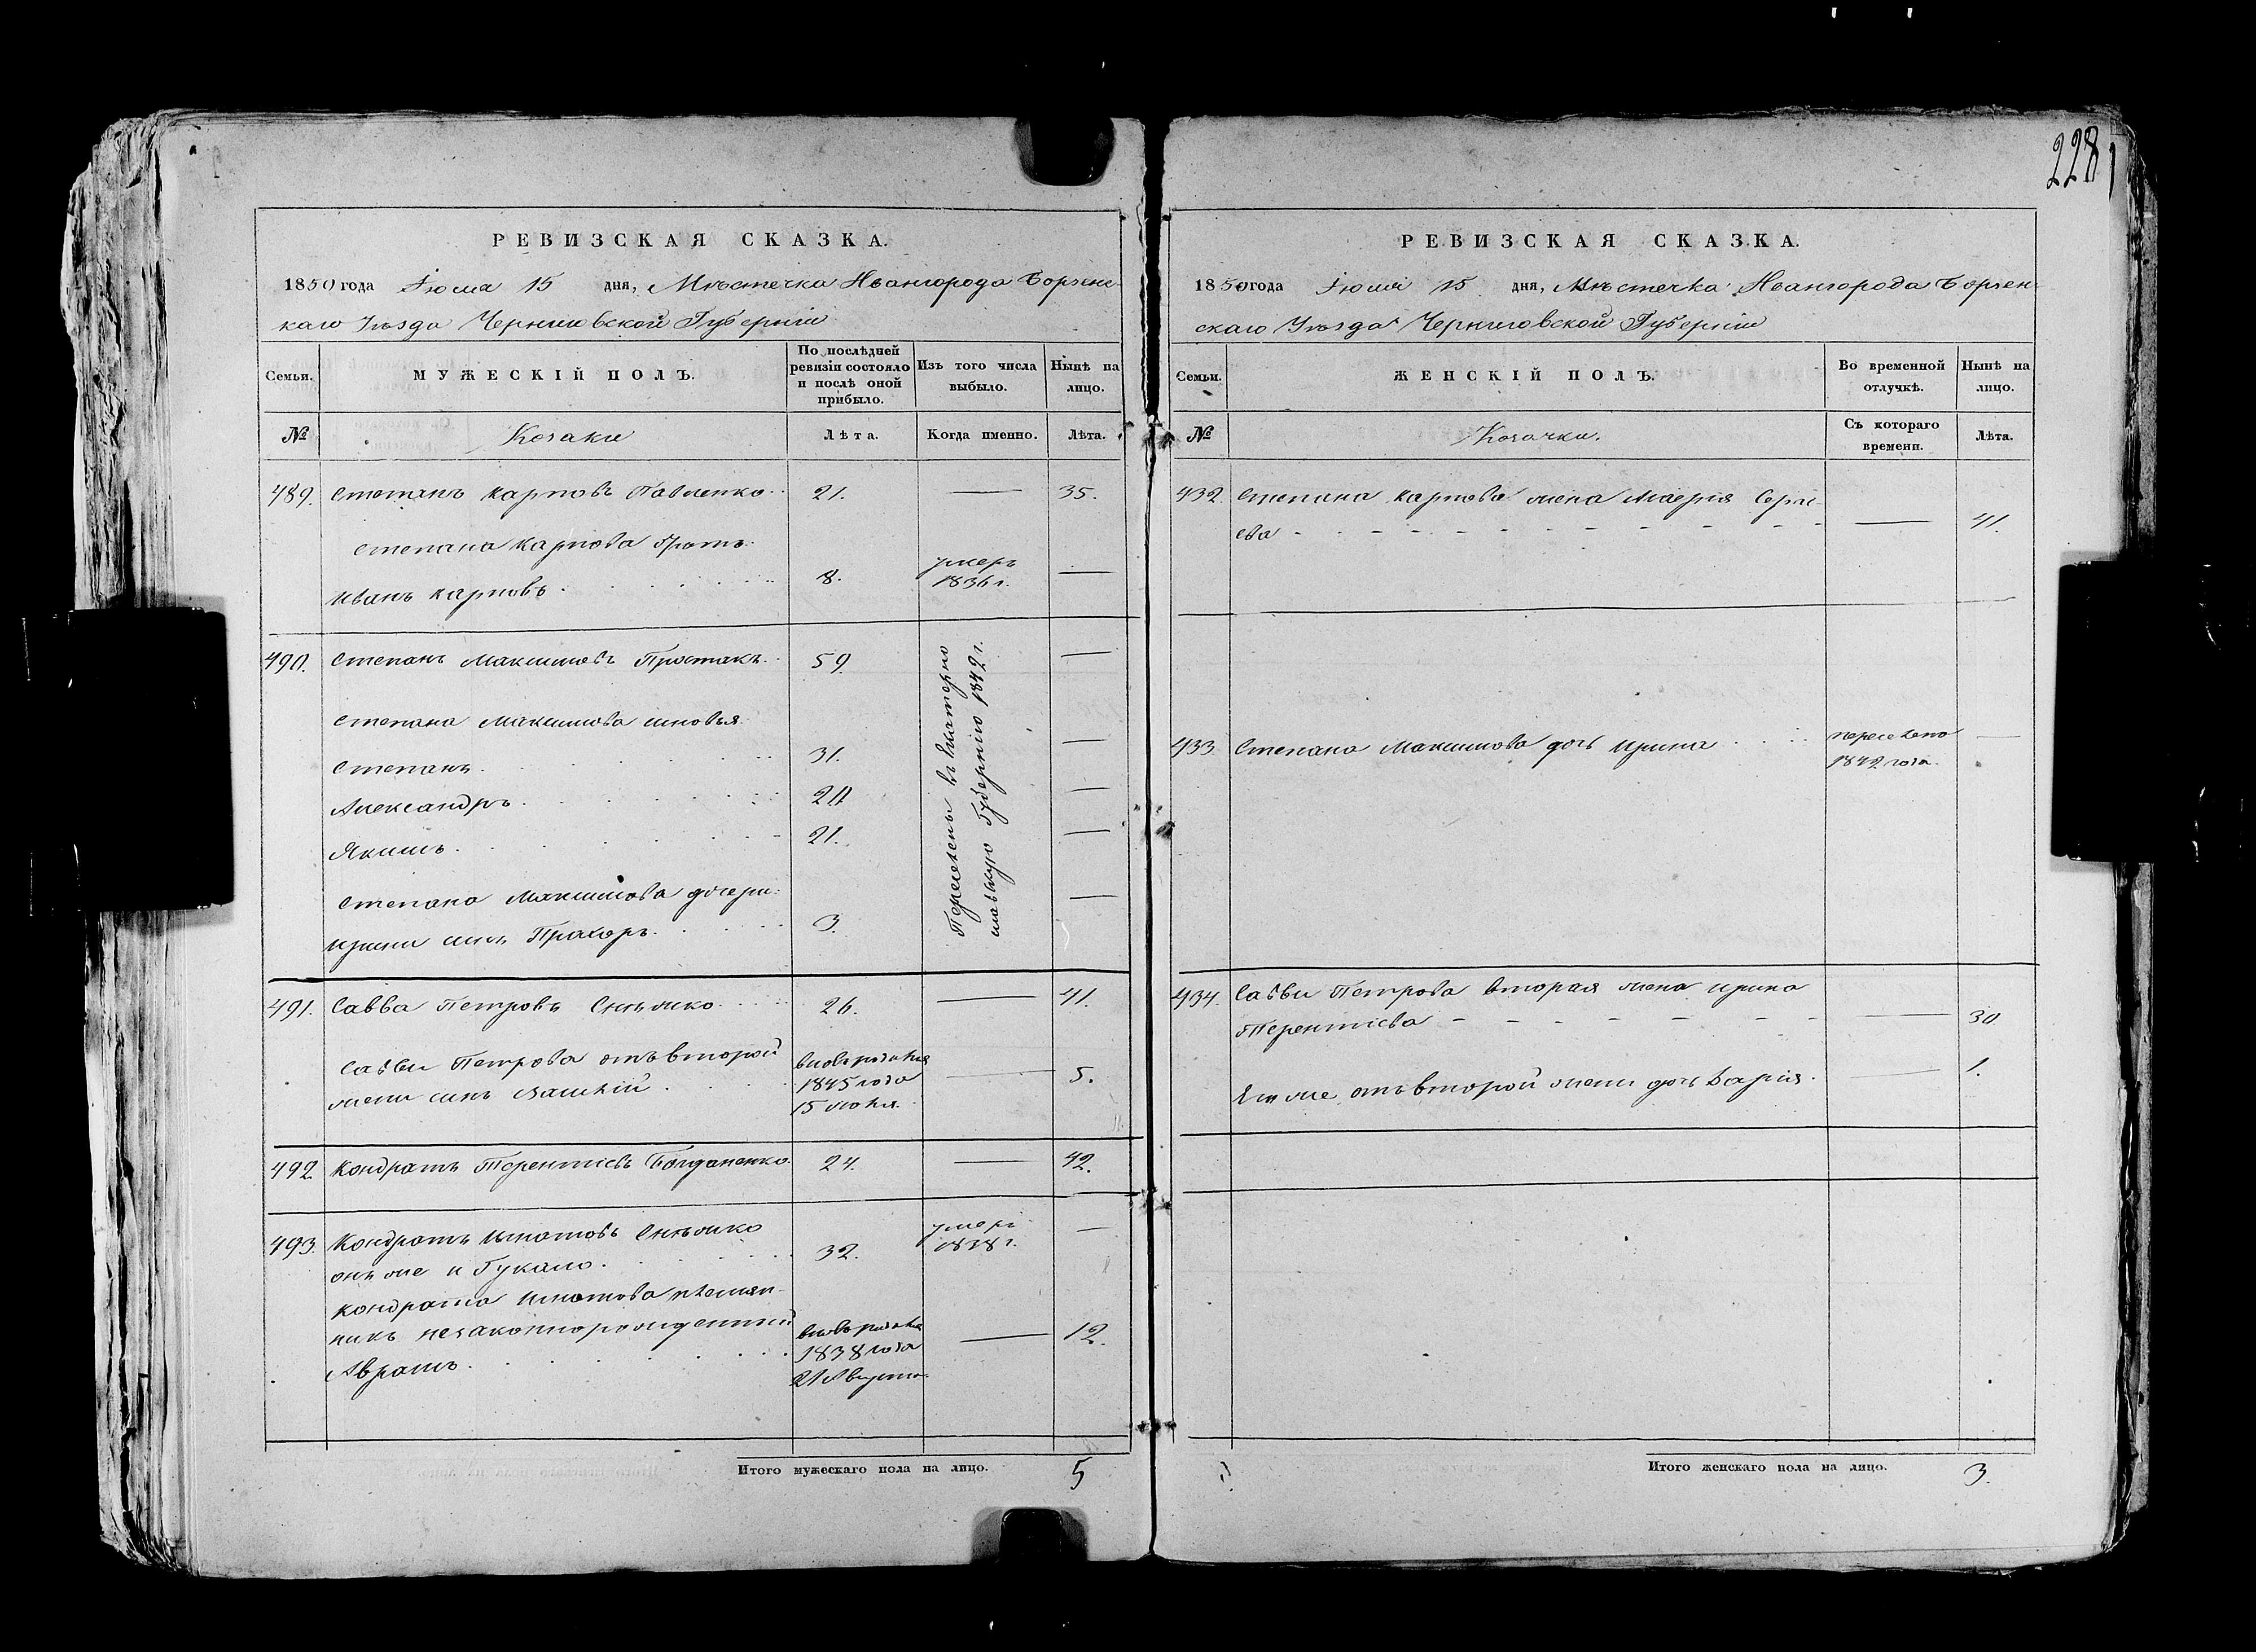 228
РЕВИЗСКАЯ СКАЗКА.
1850 года Іюля 15 дня, Мѣстечка Ивангорода Борзенс-
каго Уѣзда Черниговской Губерніи
Семьи.
МУЖЕСКІЙ ПОЛЪ.
По послѣдней ревизіи состояло и послѣ оной прибыло.
Изъ того числа выбыло.
Нынѣ на лицо.
№ Козаки Лѣта. Когда именно. Лѣта.
489. Степанъ Карповъ Павленко 21. — 35.
Степана Карпова братъ
Иванъ Карповъ 8. умеръ 1836 г. —
490. Степанъ Максимовъ Простакъ 59. —
Переселены въ Екатерино
славскую Губернію 1842 г.
Степана Максимова сыновья
Степанъ 31. —
Александръ 20 —
Якимъ 21. —
Степана Максимова дочери
Ирины сынъ Прохоръ 3. —
491. Савва Петровъ Снѣжко 26. — 41.
Саввы Петрова отъ второй
жены сынъ Василій вновь рожден 1845 года 15 июня. — 5.
492 Кондратъ Терентіевъ Богданенко 24. — 42.
493. Кондратъ Игнатовъ Снѣжко
онъ же и Гукало 32. умеръ 1838 г. —
Кондрата Игнатова племян-
никъ незаконнорожденный
Аврамъ вновь рожден 1838 года 21 Августа — 12.
Итого мужескаго пола на лицо. 5
РЕВИЗСКАЯ СКАЗКА.
1850 года Іюля 15 дня, Мѣстечка Ивангорода Борзен-
скаго Уѣзда Черниговской Губерніи
Семьи.
ЖЕНСКІЙ ПОЛЪ.
Во временной отлучкѣ.
Нынѣ на лицо.
№ Козачки. Съ котораго времени. Лѣта.
432. Степана Карпова жена Марія Серге-
ева — 41.
433. Степана Максимова дочь Ирина переселена 1842 года —
434. Саввы Петрова вторая жена Ирина
Терентіева — 30
Его же отъ второй жены дочь Дарія. — 1.
Итого женскаго пола на лицо. 3.